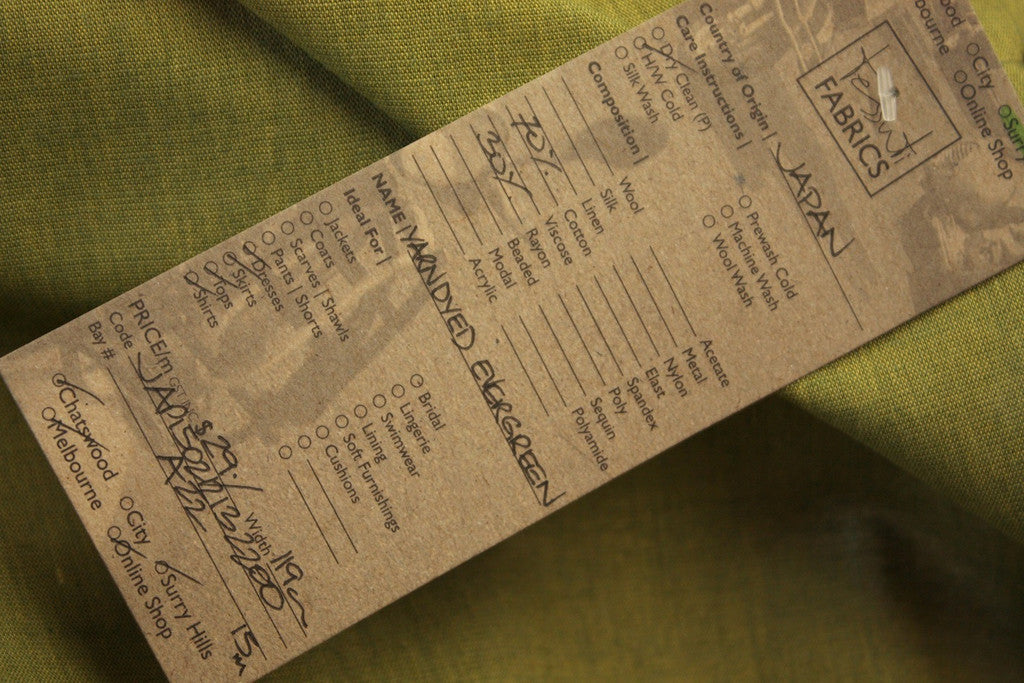 Tessuti
FABRICS
City
Online Shop
Surry
Country of Origin | JAPAN
Care Instructions |
Dry Clean (P)
H/W Cold
Silk Wash
Prewash Cold
Machine Wash
Wool Wash
Composition |
Wool
Silk
70% Linen
Cotton
30% Viscose
Rayon
Beaded
Modal
Acrylic
Acetate
Metal
Nylon
Elast
Spandex
Poly
Sequin
Polyamide
NAME | YARNDYED EVERGREEN
Ideal For |
Jackets
Coats
Scarves | Shawls
Pants | Shorts
Dresses
Skirts
Tops
Shirts
Bridal
Lingerie
Swimwear
Lining
Soft Furnishings
Cushions
PRICE/m $29./ Width 119cm
Code
Bay # A22 15m
Chatswood
Melbourne
City
Online Shop
Surry Hills